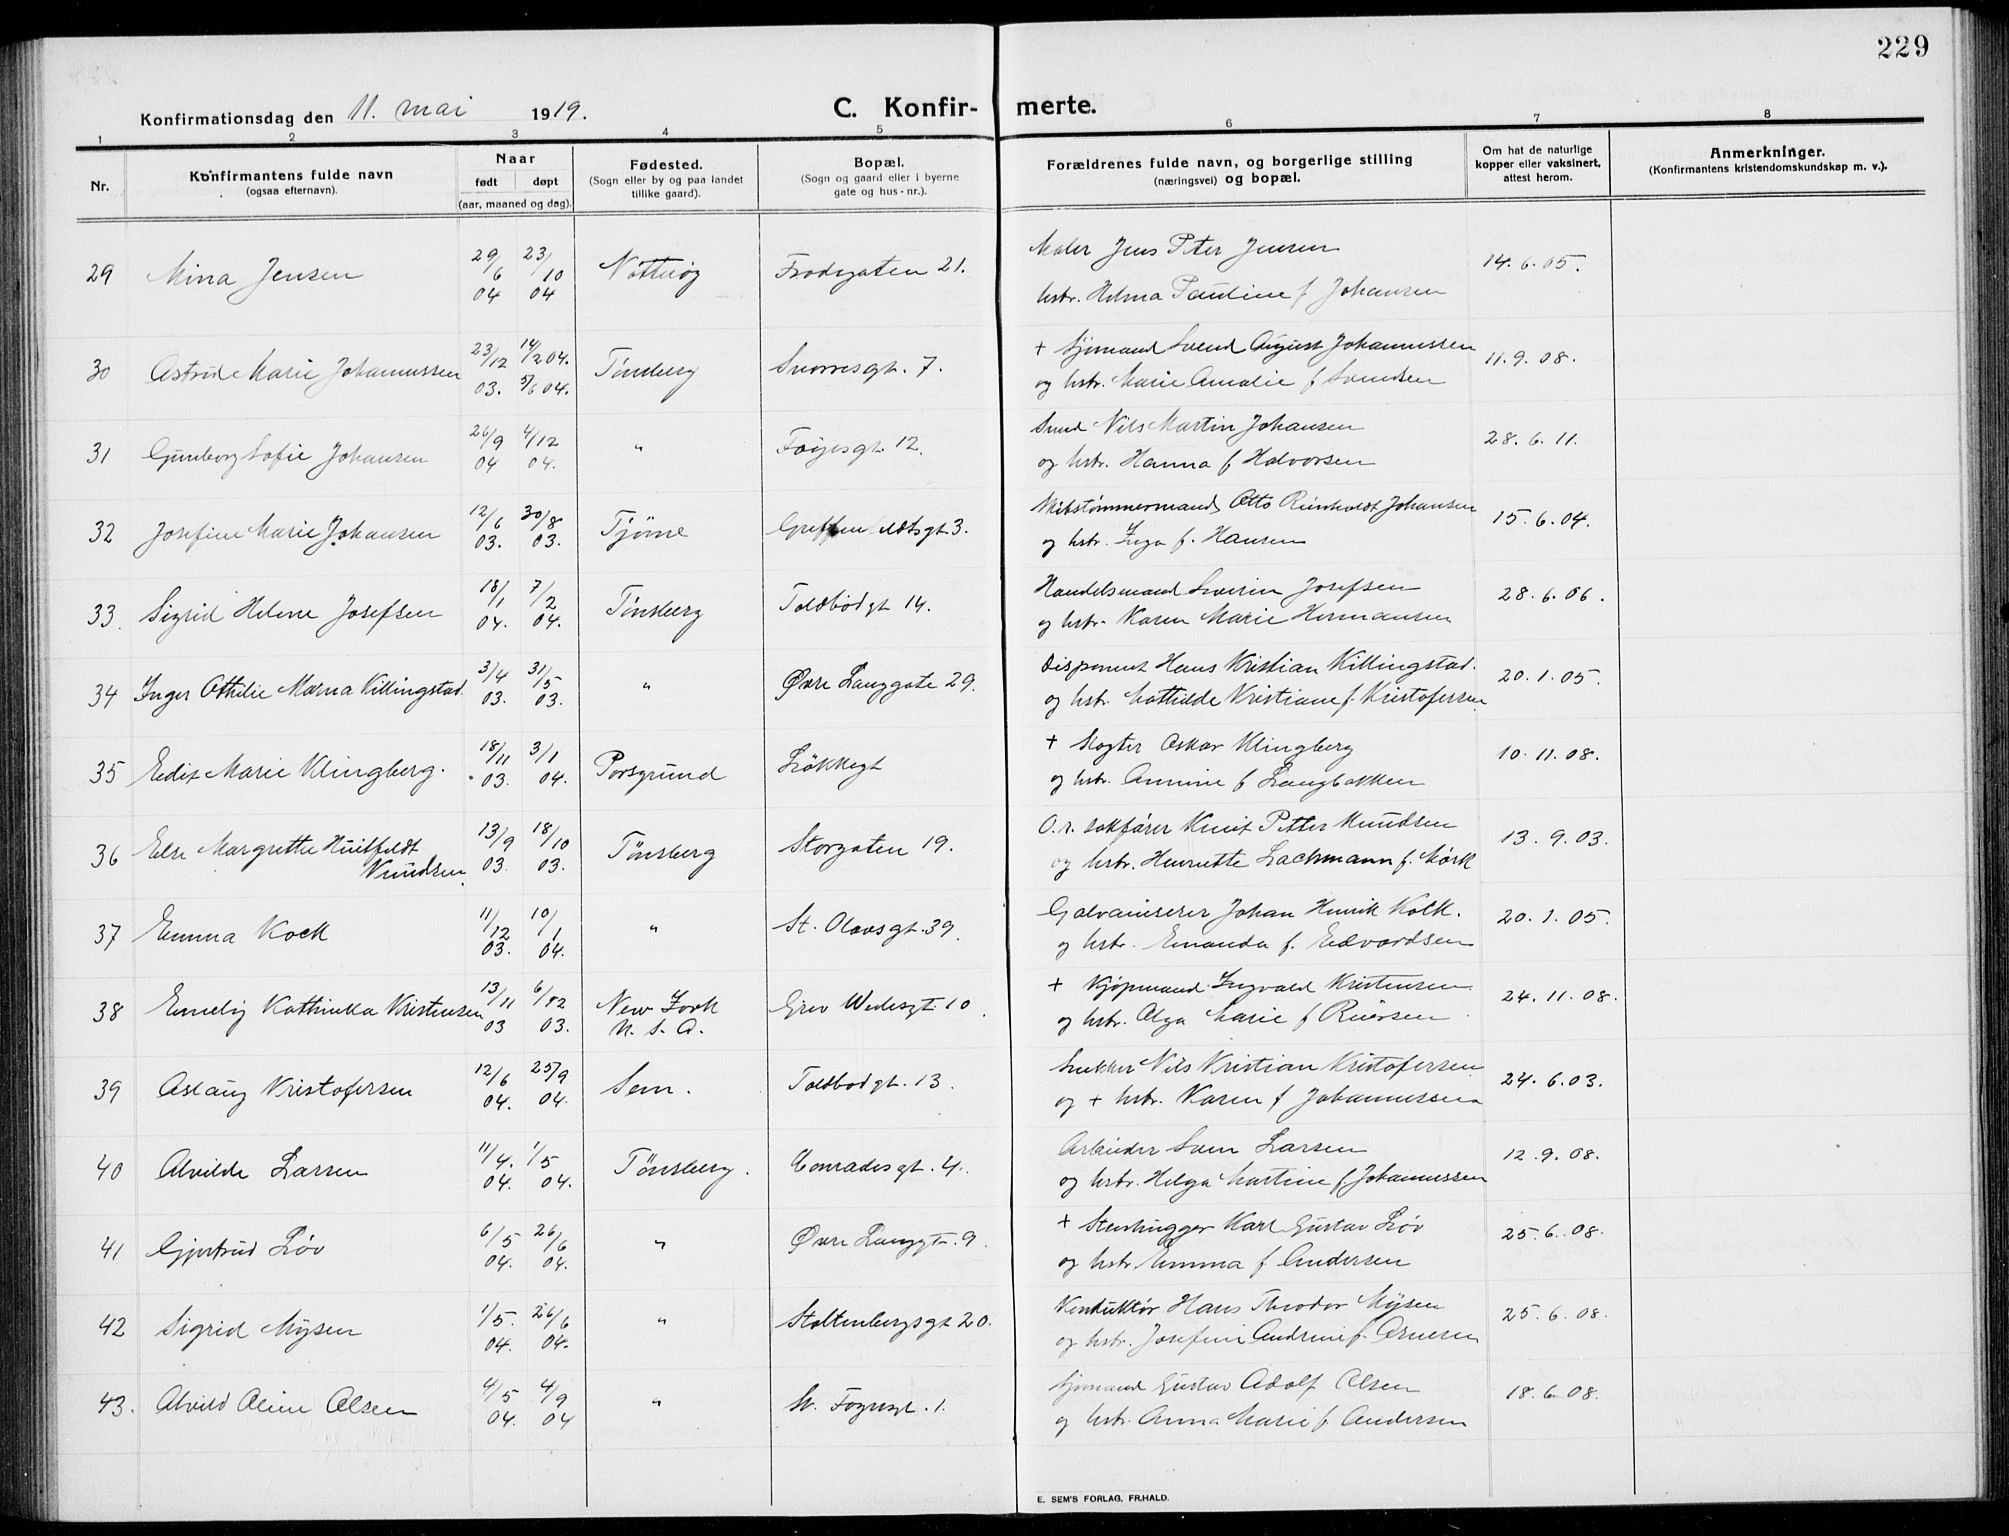 229
Konfirmationsdag den 11. mai 1919.
C. Konfirmerte.
1 2 3 4 5 6 7 8
Nr.
Konfirmantens fulde navn
(ogsaa efternavn).
Naar
født døpt
(aar, maaned og dag).
Fødested.
(Sogn eller by og paa landet
tillike gaard).
Bopæl.
(Sogn og gaard eller i byerne
gate og hus-nr.).
Forældrenes fulde navn, og borgerlige stilling
(næringsvei) og bopæl.
Om hat de naturlige
kopper eller vaksinert,
attest herom.
Anmerkninger.
(Konfirmantens kristendomskundskap m. v.).
29 Mina Jensen 29/6 04 23/10 04 Nøtterøy Frodegaten 21.
Maler Jens Peter Jensen
hstr. Helma Pauline f Johansen
14.6.05.
30 Astrid Marie Johannessen 23/12 03. 14/2 04. 5/6 04. Tønsberg Snorresgt. 7.
+ Sjømand Svend August Johannessen
og hstr. Marie Amalie f Svendsen
11.9.08.
31 Gunborg Sofie Johansen 26/9 04 4/12 04. " Føyesgt. 12.
Smed Nils Martin Johansen
og hstr. Hanna f Halvorsen
28.6.11.
32 Josefine Marie Johansen 12/6 03. 30/8 03. Tjøme Greffenfeldtsgt. 3.
Skibstømmermand Otto Reinholdt Johansen
og hstr. Inga f. Hansen
15.6.04.
33. Sigrid Helene Josefsen 18/1 04. 7/2 04. Tønsberg Toldbodgt 14.
Handelsmand Severin Josefsen
og hstr. Karen Marie Hermansen
28.6.06.
34 Inger Othilie Marna Killingstad 3/4 03. 31/5 03. " Øvre Langgate 29.
Disponent Hans Kristian Killingstad.
og hstr. Mathilde Kristiane f. Kristofersen
20.1.05.
35 Edit Marie Klingberg. 18/11 03. 3/1 04. Porsgrund Løkkegt
+ Slagter Oskar Klingberg
og hstr. Annine f Langbakken
10.11.08.
36 Else Margrethe Huitfeldt
Knudsen. 13/9 03. 18/10 03. Tønsberg Storgaten 19.
O.r. sakfører Knut Petter Knudsen
og hstr. Henriette Lachmann f. Mørk
13.9.03.
37 Emma Kock 11/12 03. 10/1 04. " St. Olavsgt. 39.
Galvaniserer Johan Henrik Kock.
og hstr. Emanda f. Edvardsen
20.1.05.
38 Emely Kathinka Kristensen 13/11 03 6/12 03. New York
U. S. A. Grev Wedelsgt. 10.
+ Kjøpmand Ingvald Kristensen
og hstr. Olga Marie f
24.11.08.
39 Aslaug Kristofersen 12/6 04. 25/9 04. Sem. Toldbodgt. 13.
Snekker Nils Kristian Kristofersen
og + hstr. Karen f Johannessen
24.6.03.
40 Alvilde Larsen 11/4. 04. 1/5 04. Tønsberg. Conradesgt. 4.
Arbeider Sven Larsen
og hstr. Helga Martine f. Johannessen
12.9.08.
41 Gjertrud Løv 6/5 04. 26/6 04. " Øvre Langgt. 9.
+ Stenhugger Karl Gustav Løv
og hstr. Emma f Andersen
25.6.08.
42 Sigrid Mysen 1/5. 04. 26/6 04. " Stoltenbergsgt 20.
Konduktør Hans Theodor Mysen
og hstr. Josefine Andrine f. Arnesen
25.6.08.
43. Alvild Oline Olsen 4/5 04. 4/9 04 " St. Føyensgt. 1.
Sjømand Gustav Adolf Olsen
og hstr. Anna Marie f. Andersen
18.6.08.
E. SEM'S FORLAG, FR.HALD.